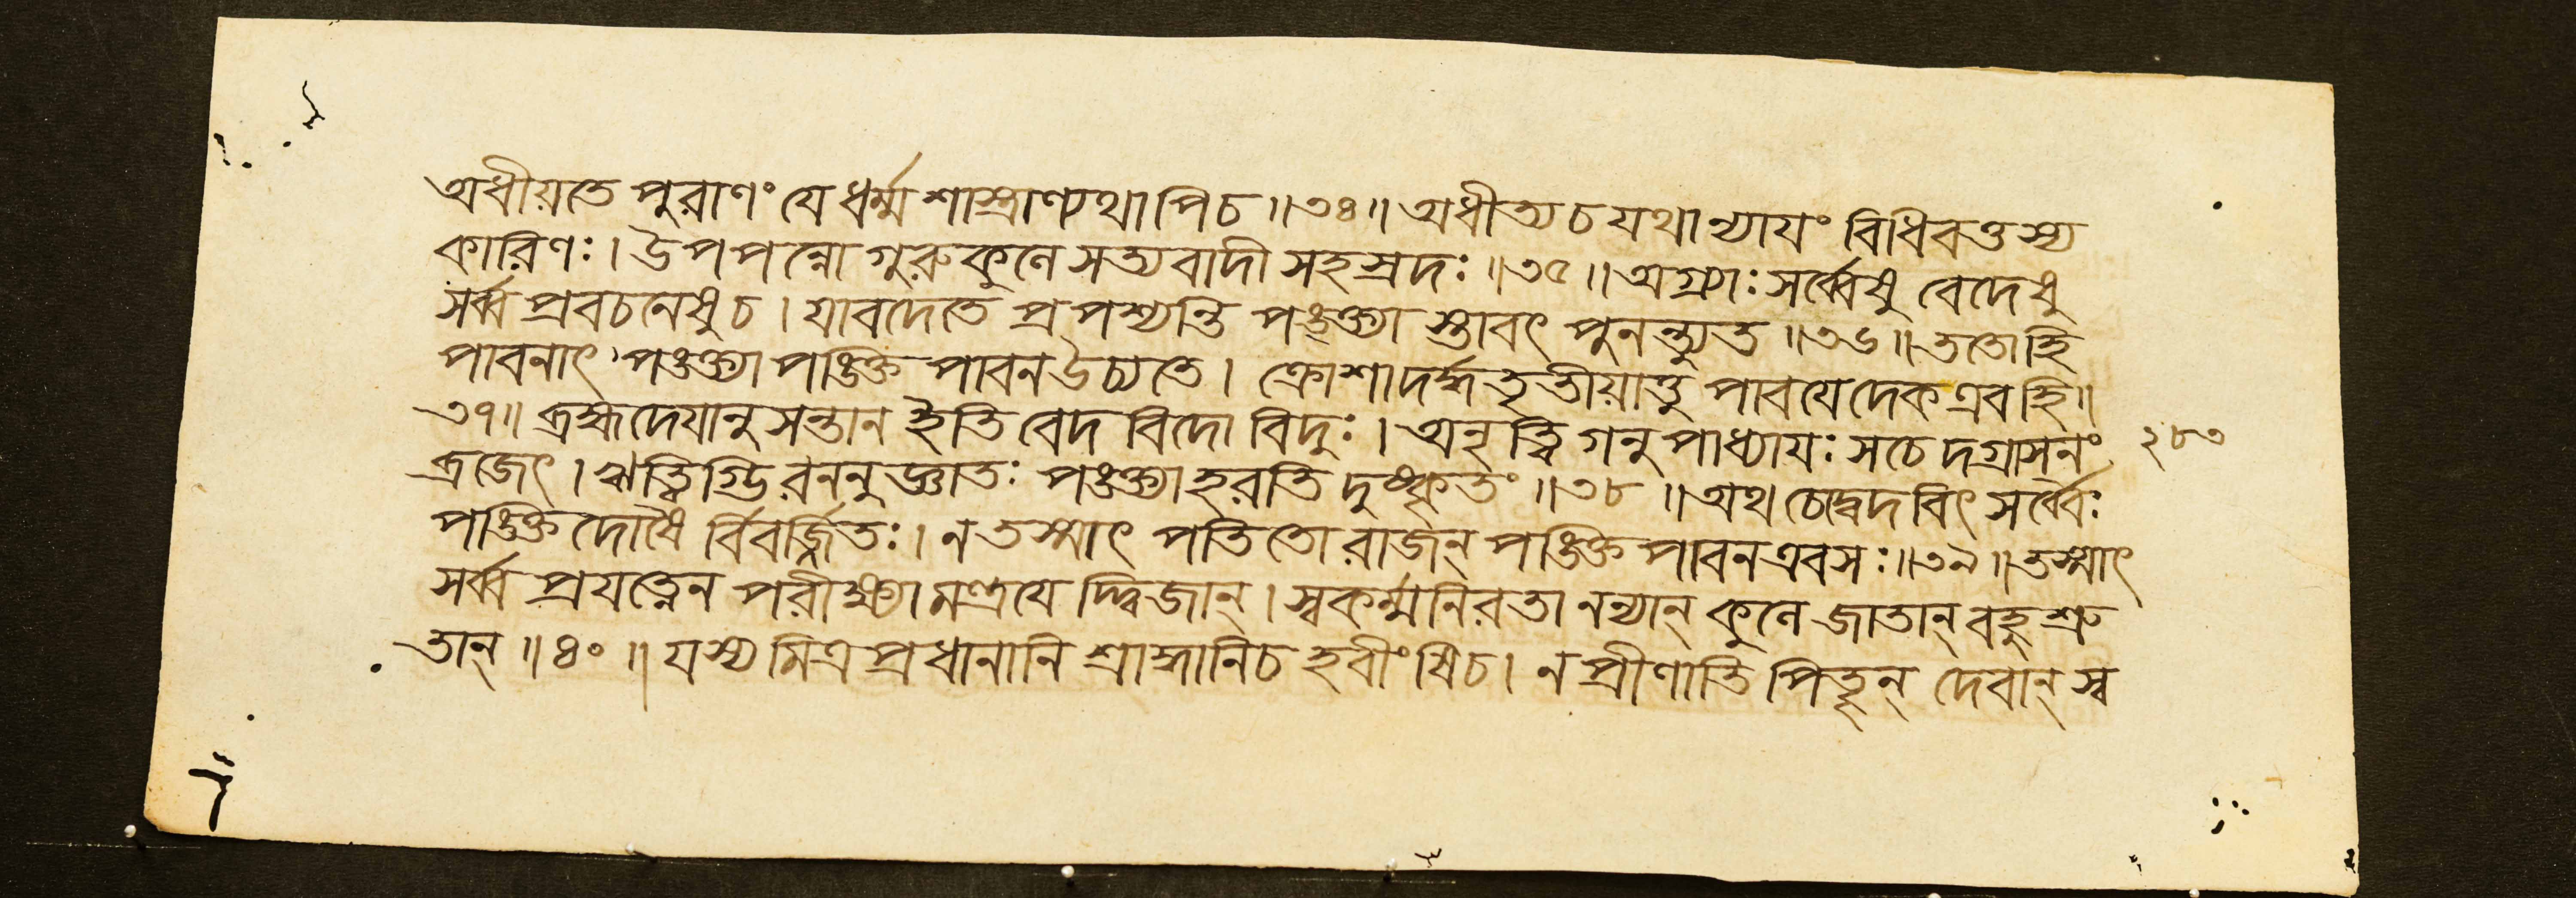 অধীয়তে পুরাণং যে ধর্ম্মশাস্ত্রাণ্যথাপিচ॥৩৪॥ অধীত্য চ যথান্যাযং বিধিবত্তস্য
কারিণঃ। উপপন্নো গুরুকুলে সত্যবাদী সহস্রদঃ॥৩৫॥ অগ্র্যাঃ সর্ব্বেষু বেদেষু
সর্ব্ব প্রবচনেষু চ। যাবদেতে প্রপশ্যন্তি পঙ্ক্ত্যা স্তাবৎ পুনন্ত্যুত॥৩৬॥ ততোহি
পাবনাৎ পঙক্ত্যা পঙক্তি পাবন উচ্যতে। ক্রোশাদর্দ্ধতৃতীয়াত্তু পাবযেদেক এবহি॥
৩৭॥ ব্রহ্মদেযানুসন্তান ইতি বেদ বিদো বিদুঃ। অনৃত্বিগনুপাধ্যাযঃ সচেদগ্রাসনং
ব্রজেৎ। ঋত্বিগ্ভিরননুজ্ঞাতঃ পঙক্ত্যাহরতি দুষ্কৃতং॥৩৮॥ অথ চেদ্বেদবিৎ সর্ব্বৈঃ
পঙক্তি দোষৈ র্বিবর্জ্জিতঃ। ন তস্মাৎ পতিতো রাজন্ পঙক্তি পাবন এবসঃ॥৩৯॥ তস্মাৎ
সর্ব্ব প্রযত্নেন পরীক্ষ্যামন্ত্রযেদ্দ্বিজান্। স্বকর্ম্মনিরতানন্যান্ কুলে জাতান্ বহুশ্রু
তান্॥৪০॥ যস্য মিত্র প্রধানানি শ্রাদ্ধানিচ হবীংষিচ। ন প্রীণাতি পিতৃন্ দেবান্ স্ব
২৮৩